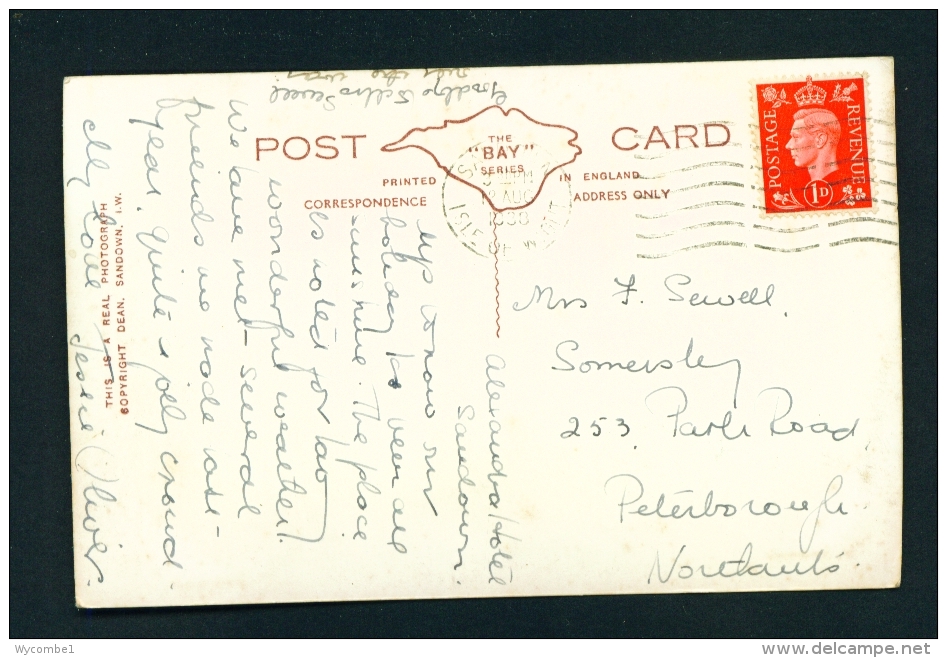 POST CARD
THE
"BAY"
SERIES
PRINTED IN ENGLAND
CORRESPONDENCE ADDRESS ONLY
POSTAGE REVENUE
1D
AUG
1938
ISLE OF WIGHT
Mrs F. Sewell
Somersley
253, Park Road
Peterborough
Northants.
Alexandra Hotel
Sandown.
Up to now our
holiday has been all
sunshine. The place
is noted for its
wonderful weather.
We have met several
friends we made last
year. Quite a jolly crowd.
All love Jessie Oliver.
Sewell
THIS IS A REAL PHOTOGRAPH
COPYRIGHT DEAN, SANDOWN, I.W.
Wycombe1
www.delcampe.net